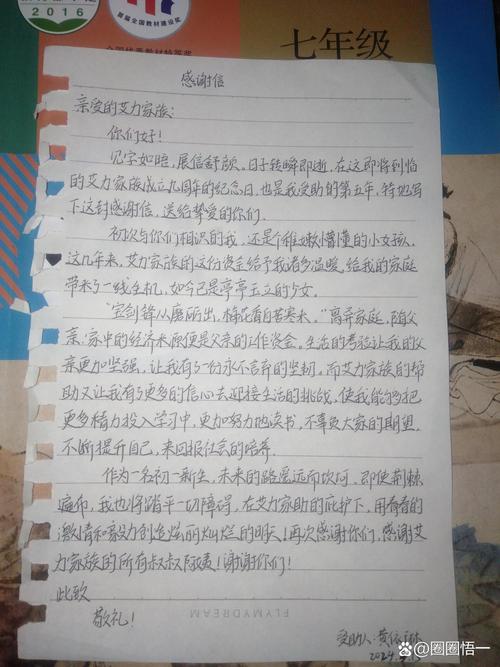 2016
首届全国教材建设奖
全国优秀教材特等奖
七年级
感谢信
亲爱的艾力家族:
你们好!
见字如晤,展信舒颜。日子转瞬即逝,在这即将到临
的艾力家族成立九周年的纪念日,也是我受助的第五年,特地写
下这封感谢信,送给挚爱的你们。
初次与你们相识的我,还是个稚嫩懵懂的小女孩,
这几年来,艾力家族的这份资金给予我诸多温暖,给我的家庭
带来了一线生机,如今已是亭亭玉立的少女。
“宝剑锋从磨砺出,梅花香自苦寒来。”离异家庭,随父
亲,家中的经济来源便是父亲的工作资金。生活的考验让我的父
亲更加坚强,让我有了份永不言弃的坚韧,而艾力家族的帮
助又让我有了更多的信心去迎接生活的挑战,使我能够把
更多精力投入学习中,更加努力地读书,不辜负大家的期望,
不断提升自己,来回报社会的培养。
作为一名初一新生,未来的路遥远而坎坷,即使荆棘
遍布,我也将踏平一切障碍,在艾力家助的庇护下,用青春的
激情和毅力创造绚丽灿烂的明天!再次感谢你们,感谢艾
力家族的所有叔叔阿姨!谢谢你们!
此致
敬礼!
FLYMYDREAM
受助人:黄
2024.
@圈圈悟一